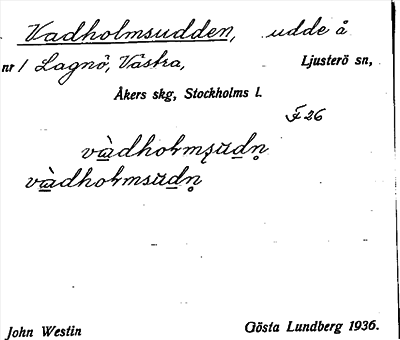 Vadholmsudden, udde å
nr 1 Lagnö, Västra, Ljusterö sn,
Åkers skg, Stockholms l.
F 26
vàdholmsudn̥
vàdholmsudn̥
John Westin Gösta Lundberg 1936.